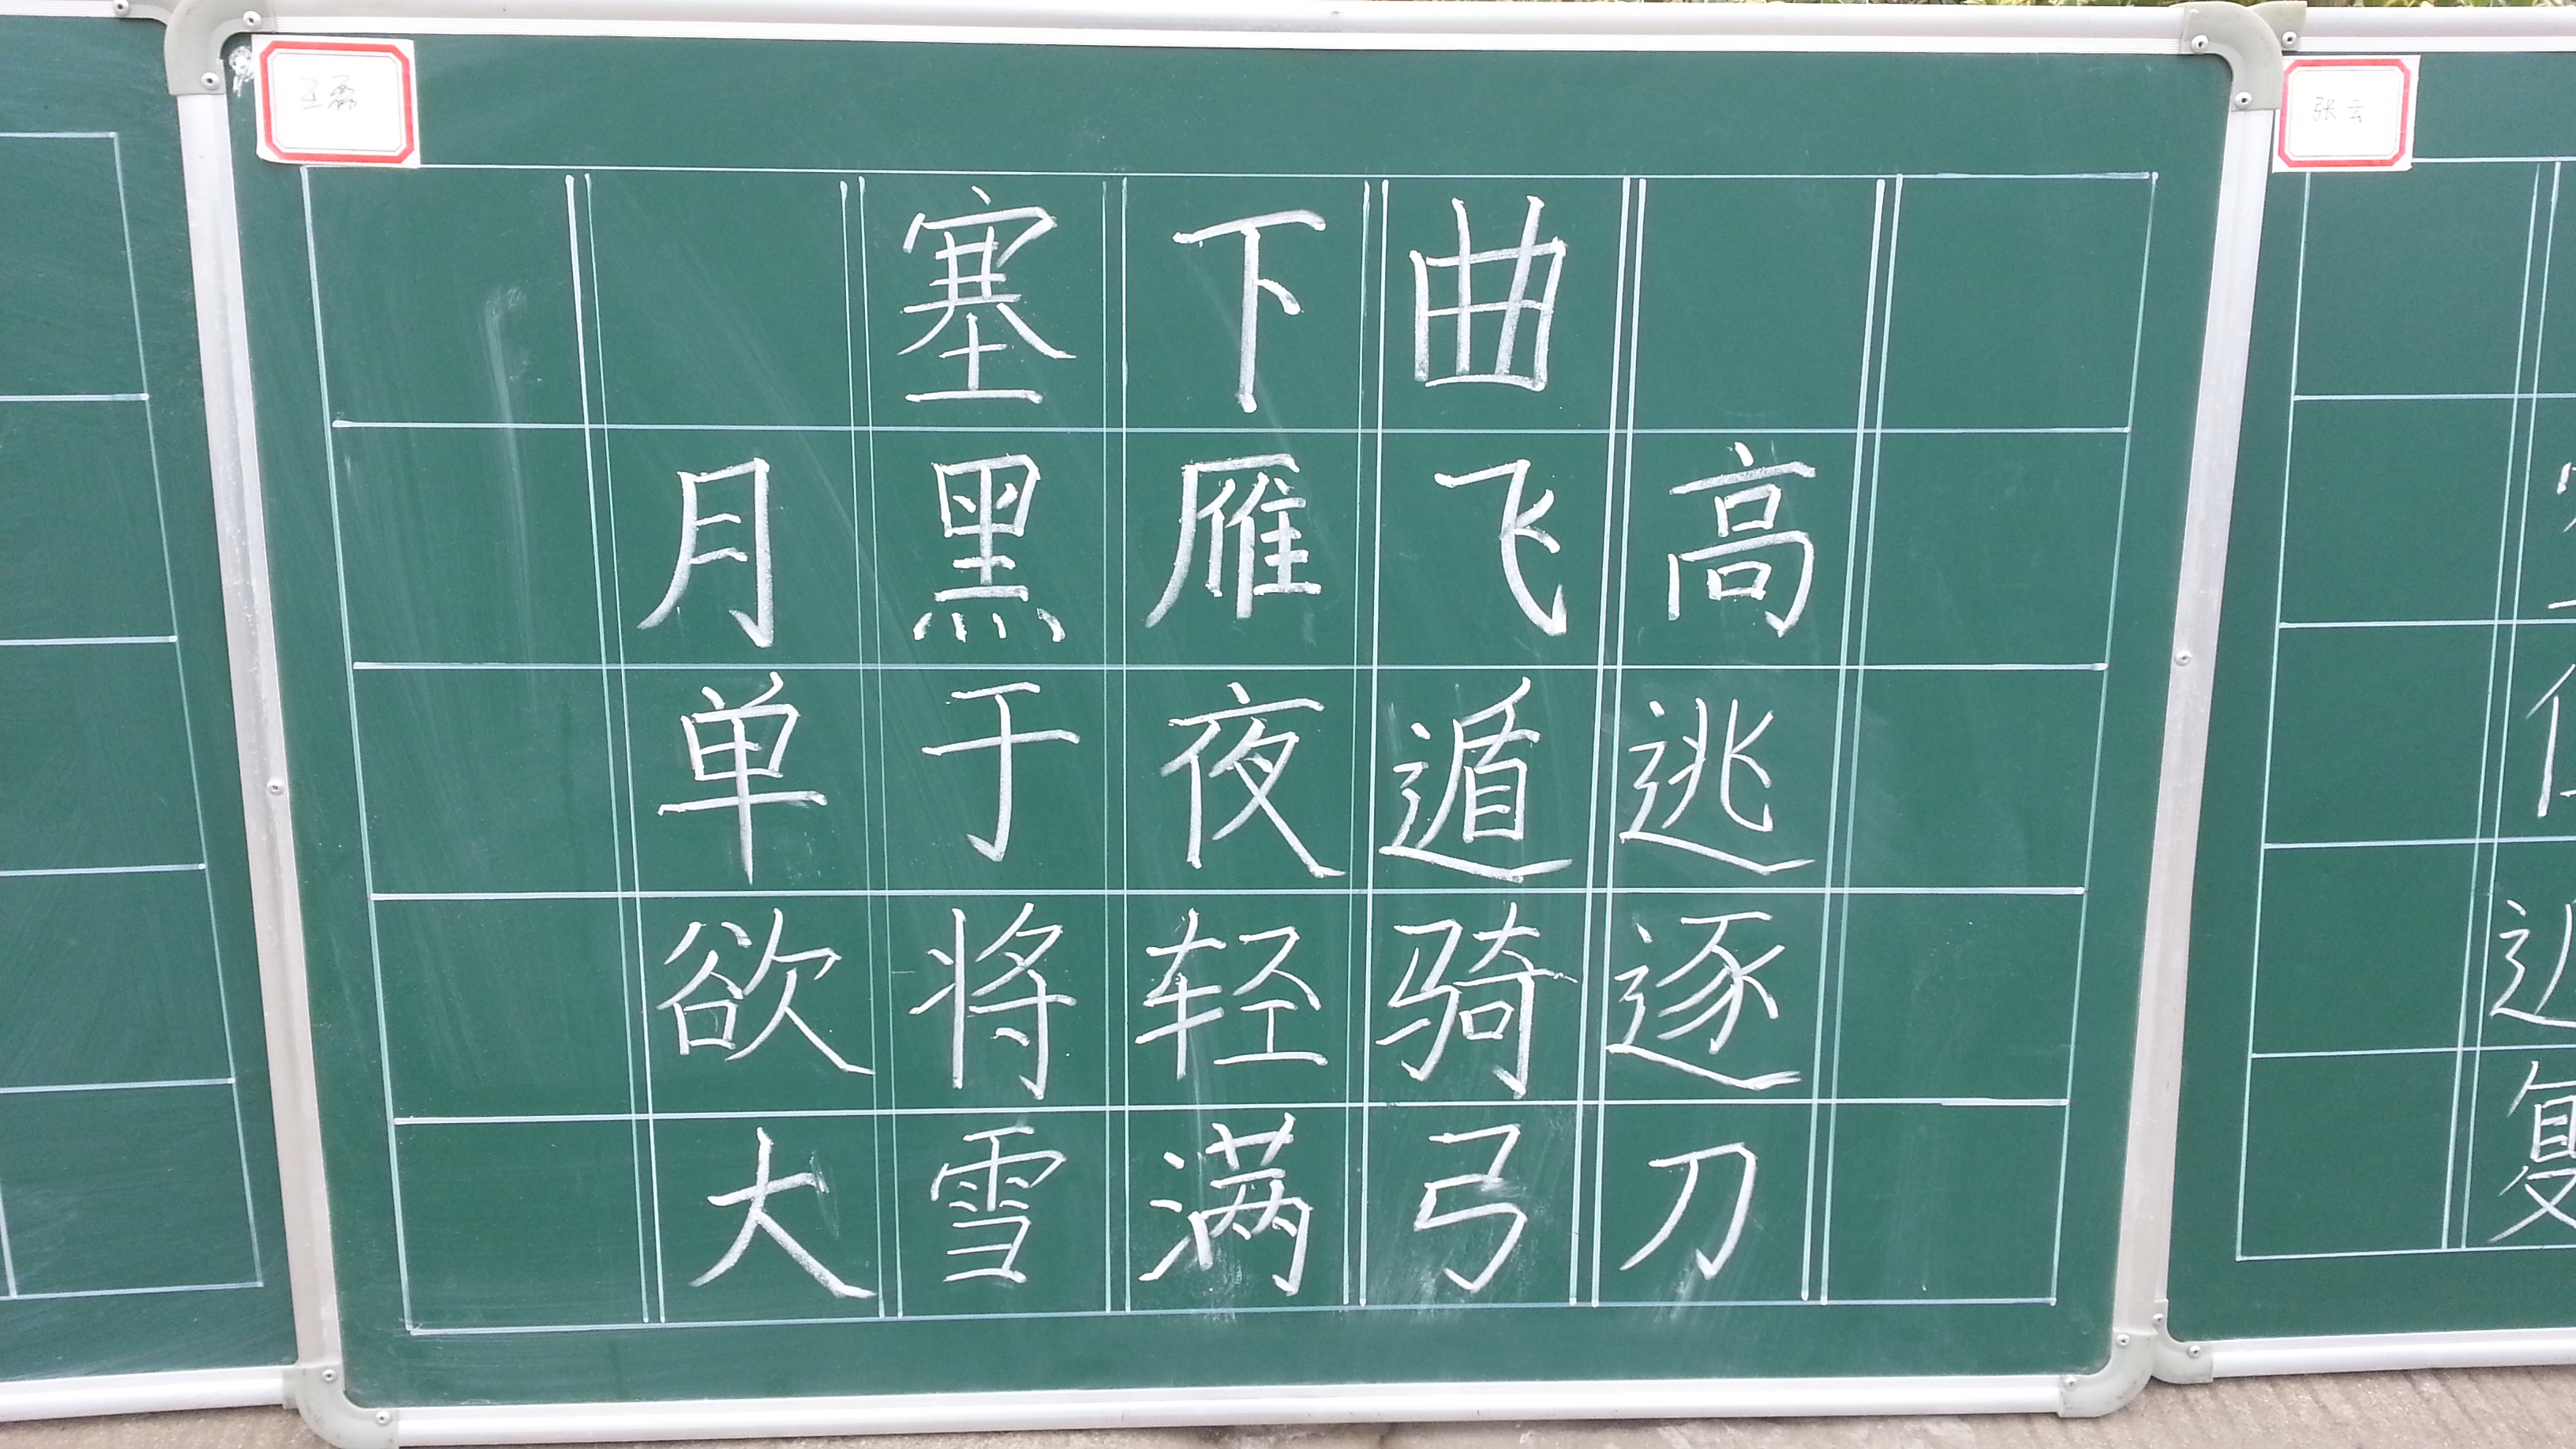 王磊
张云
塞下曲
月黑雁飞高
单于夜遁逃
欲将轻骑逐
大雪满弓刀